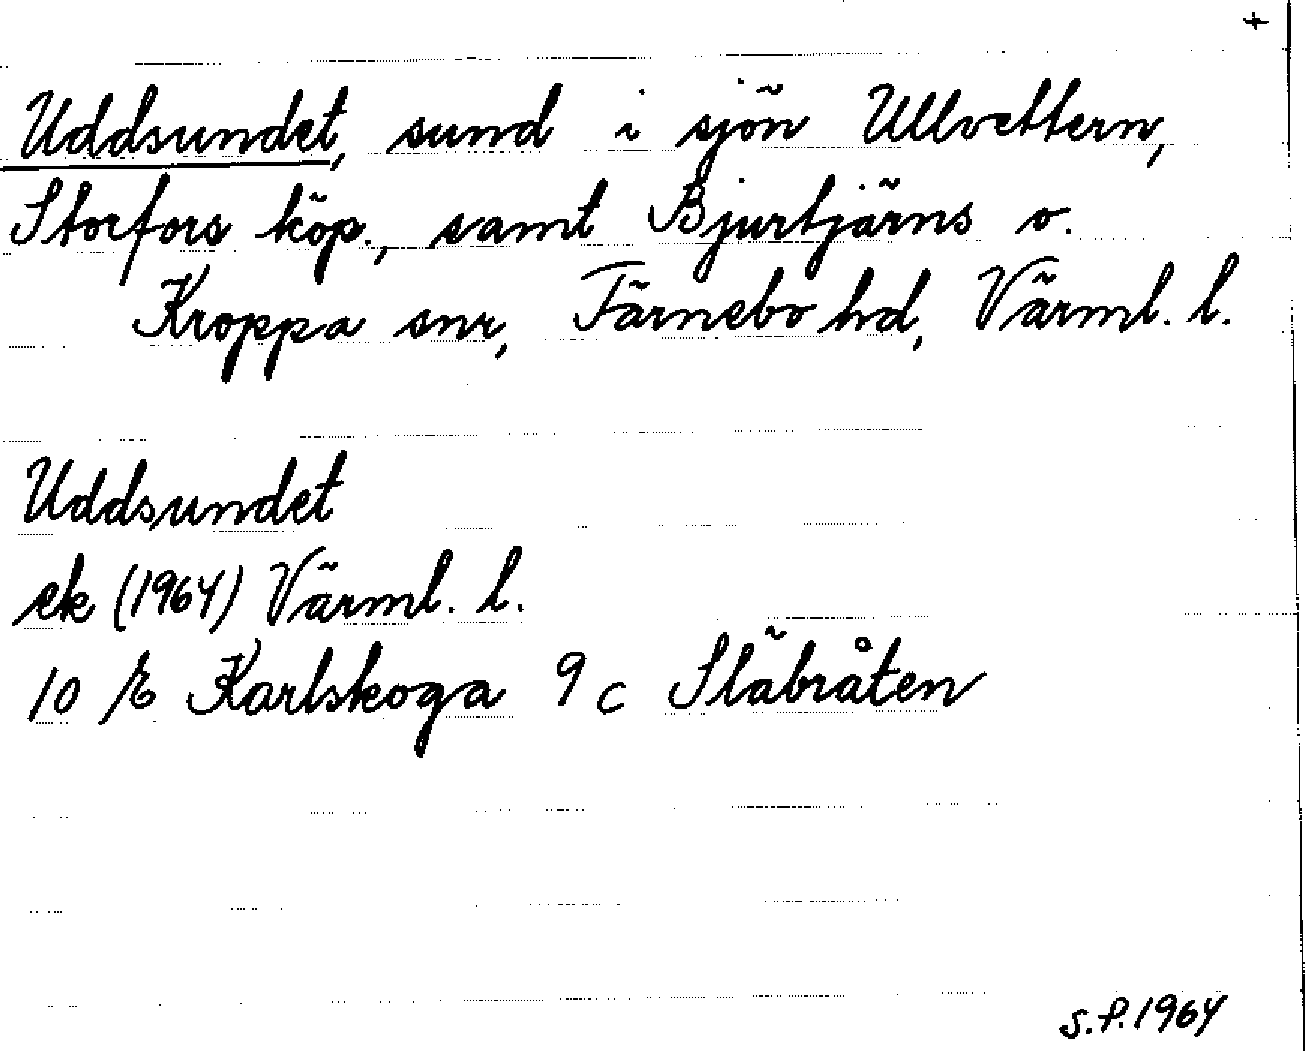 +
Uddsundet, sund i sjön Ullvettern,
Storfors köp., samt Bjurtjärns o.
Kroppa snr, Färnebo hd, Värml. l.
Uddsundet
ek (1964) Värml. l.
10 E Karlskoga 9 c Släbråten
S.P. 1964